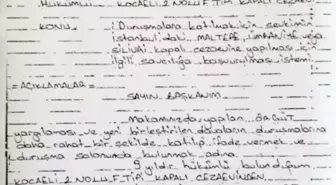 Hükümlü KOCAELİ 2 NOLU F TİPİ KAPALI CEZAEVİ
KONU : Duruşmalara katılmak için sevkimin
İstanbul'daki MALTEPE, ÜMRANİYE veya
SİLİVRİ kapalı cezaevine yapılması için
ilgili savcılığa başvurulması istemi.
=AÇIKLAMALAR=
SAYIN BAŞKANIM
Makamınızda yapılan ÖRGÜT
yargılaması ve yeni birleştirilen dosyaların duruşmalarına
daha rahat bir şekilde katılıp ifade vermek ve
duruşma salonunda bulunmak adına
9 yıldır hükümlü bulunduğum
KOCAELİ 2 NOLU F TİPİ KAPALI CEZAEVİNDEN